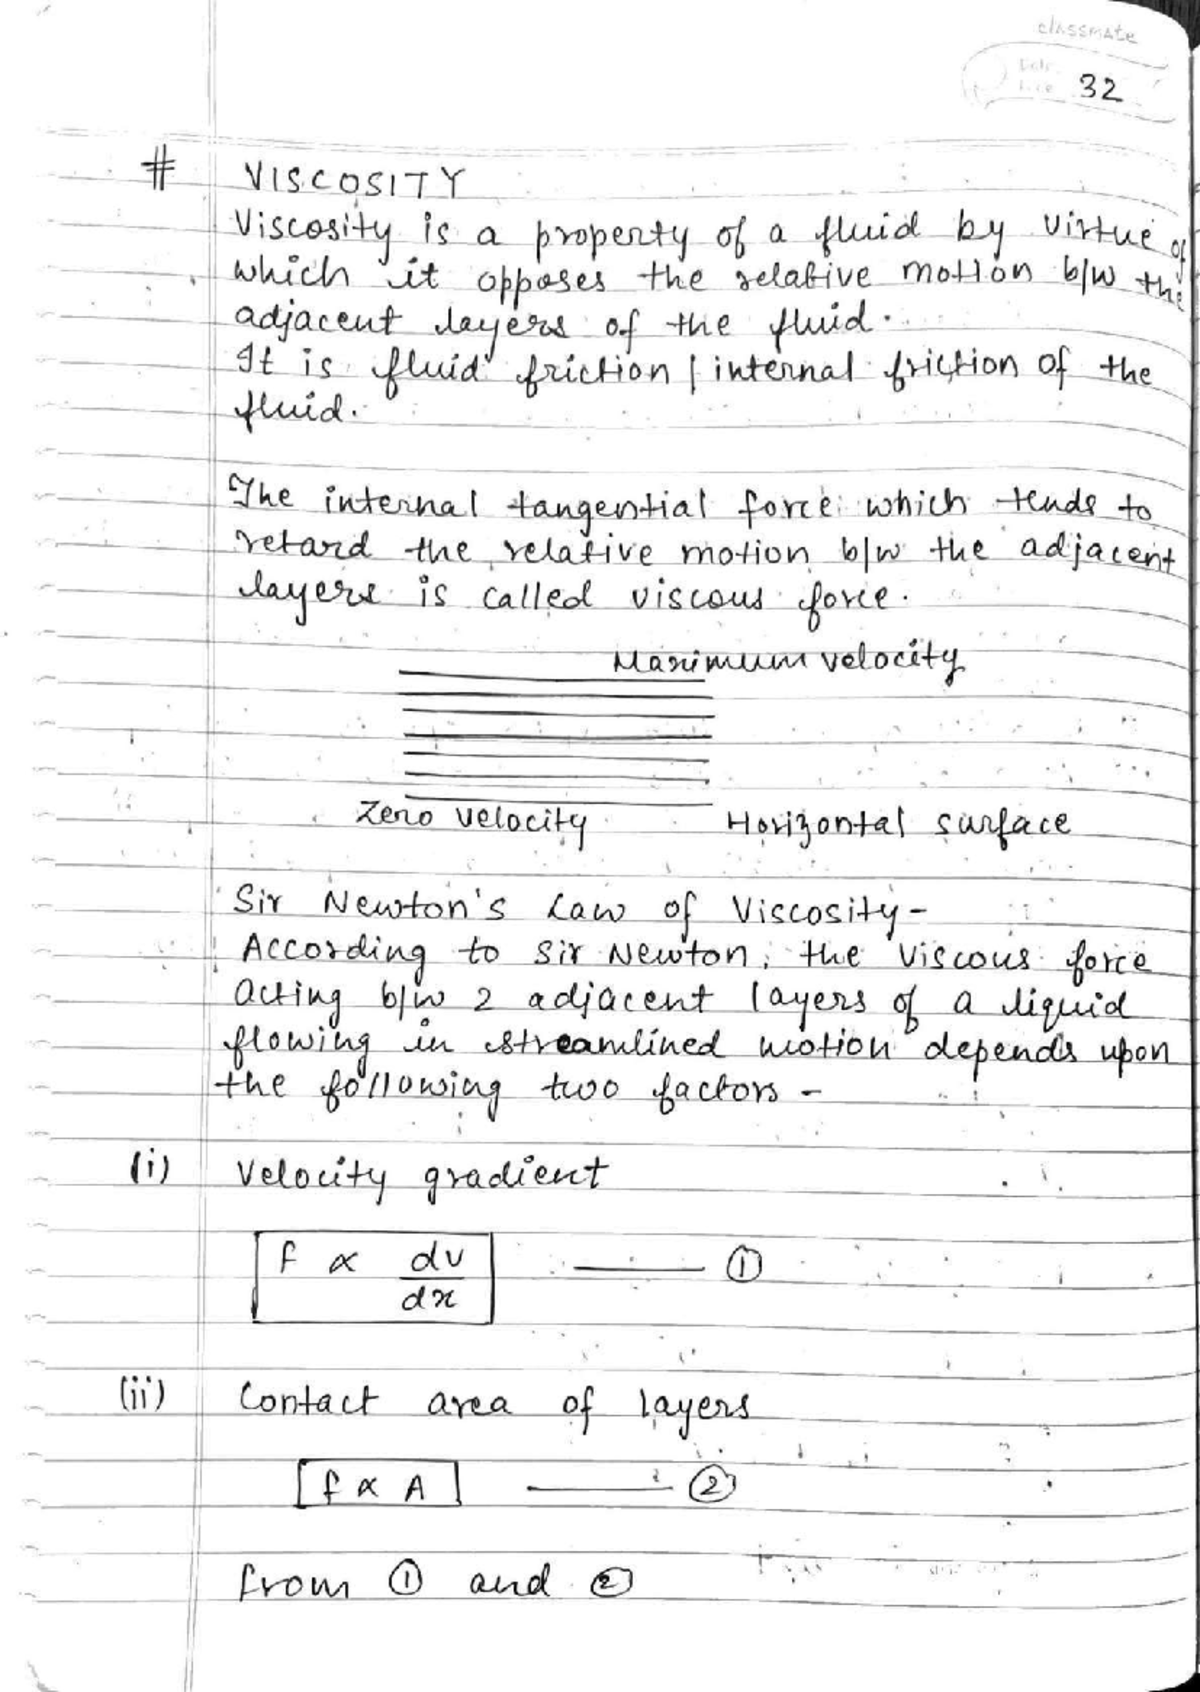 classmate
32
# VISCOSITY
Viscosity is a property of a fluid by virtue of
which it opposes the relative motion b/w the
adjacent layers of the fluid.
It is fluid friction / internal friction of the
fluid.
The internal tangential force which tends to
retard the relative motion b/w the adjacent
layers is called viscous force.
Maximum velocity
Zero velocity Horizontal surface
Sir Newton's Law of Viscosity-
According to Sir Newton, the viscous force
acting b/w 2 adjacent layers of a liquid
flowing in streamlined motion depends upon
the following two factors -
(i) Velocity gradient
f ∝ dv/dx —— ①
(ii) Contact area of layers
f ∝ A —— ②
from ① and ②